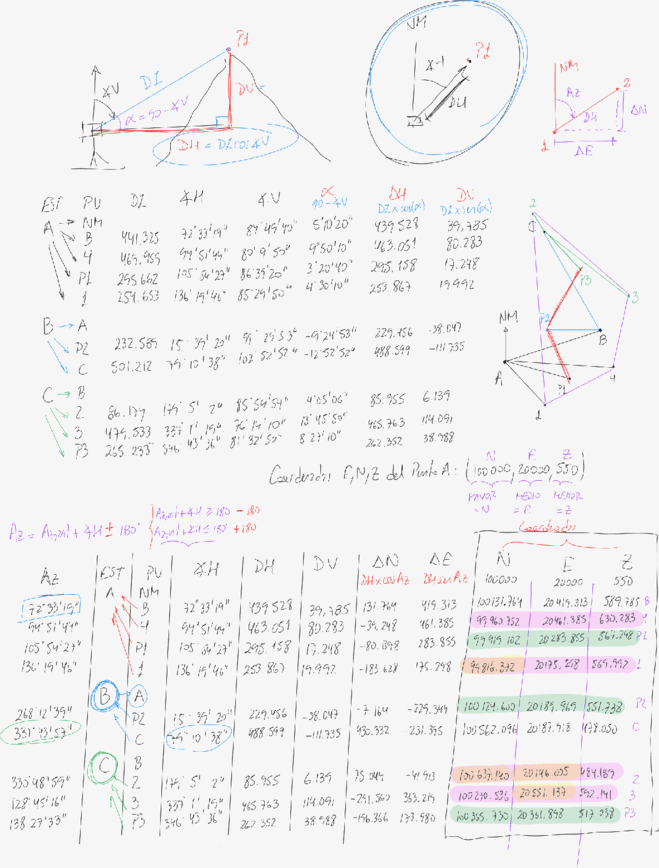 P1
NM
∡V
DI
α=90-∡V
DV
DH = DI cos∡V
∡H
P1
DH
NM
AZ
2
DH
ΔN
1
ΔE
EST PV DI ∡H ∡V α DH DV
90-∡V DI×cos(α) DI×sen(α)
A NM
B 441.325 72°33'19" 84°49'40" 5°10'20" 439.528 39,785
4 469.959 94°51'49" 80°9'50" 9°50'10" 463.051 80.283
P1 295.662 105°54'27" 86°39'20" 3°20'40" 295.158 17.248
1 254.653 136°19'46" 85°29'50" 4°30'10" 253.867 19.992
B A
P2 232.589 15°39'20" -9°24'53" 229.456 -38.047
C 501.212 79°10'38" 102°52'52" -12°52'52" 488.599 -111.735
C B
2 86.174 179°5'2" 85°54'54" 4°05'06" 85.955 6.139
3 479.533 337°1'19" 76°14'10" 13°45'50" 465.763 114.091
P3 265.233 346°43'36" 81°32'50" 8°27'10" 262.352 38.988
2
C
P3
3
NM
P2
B
A
P1
4
1
N E Z
Coordenadas E,N,Z del Punto A: (100000, 20000, 550)
MAYOR MEDIO MENOR
=N =E =Z
Az = Azant + ∡H ± 180°
Azant + ∡H ≥ 180 - 180
Azant + ∡H ≤ 180 + 180
Coordenadas
AZ EST PV ∡H DH DV ΔN ΔE N E Z
DH×cosAz DH senAz
A NM 100000 20000 550
72°33'19" B 72°33'19" 439.528 39,785 131.764 419.313 100131.764 20419.313 589.785 B
94°51'49" 4 94°51'49" 463.051 80.283 -39.248 461.385 99960.752 20461.385 630.283 4
105°54'27" P1 105°54'27" 295.158 17.248 -80.898 283.855 99919.102 20283.855 567.248 P1
136°19'46" 1 136°19'46" 253.867 19.992 -183.628 175.298 99816.372 569.992 1
B A
268°12'39" P2 15°39'20" 229.456 -38.047 -7.164 -229.344 100124.600 20189.969 551.738 P2
331°43'57" C 79°10'38" 488.599 -111.735 430.332 -231.395 100562.096 20187.918 478.050 C
C B
330°48'59" 2 179°5'2" 85.955 6.139 75.044 -41.913 100637.140 484.189 2
128°45'16" 3 337°1'19" 465.763 114.091 363.219 20551.137 592.141 3
138°27'33" P3 346°43'36" 262.352 38.988 -196.366 173.980 100365.730 20361.898 517.038 P3